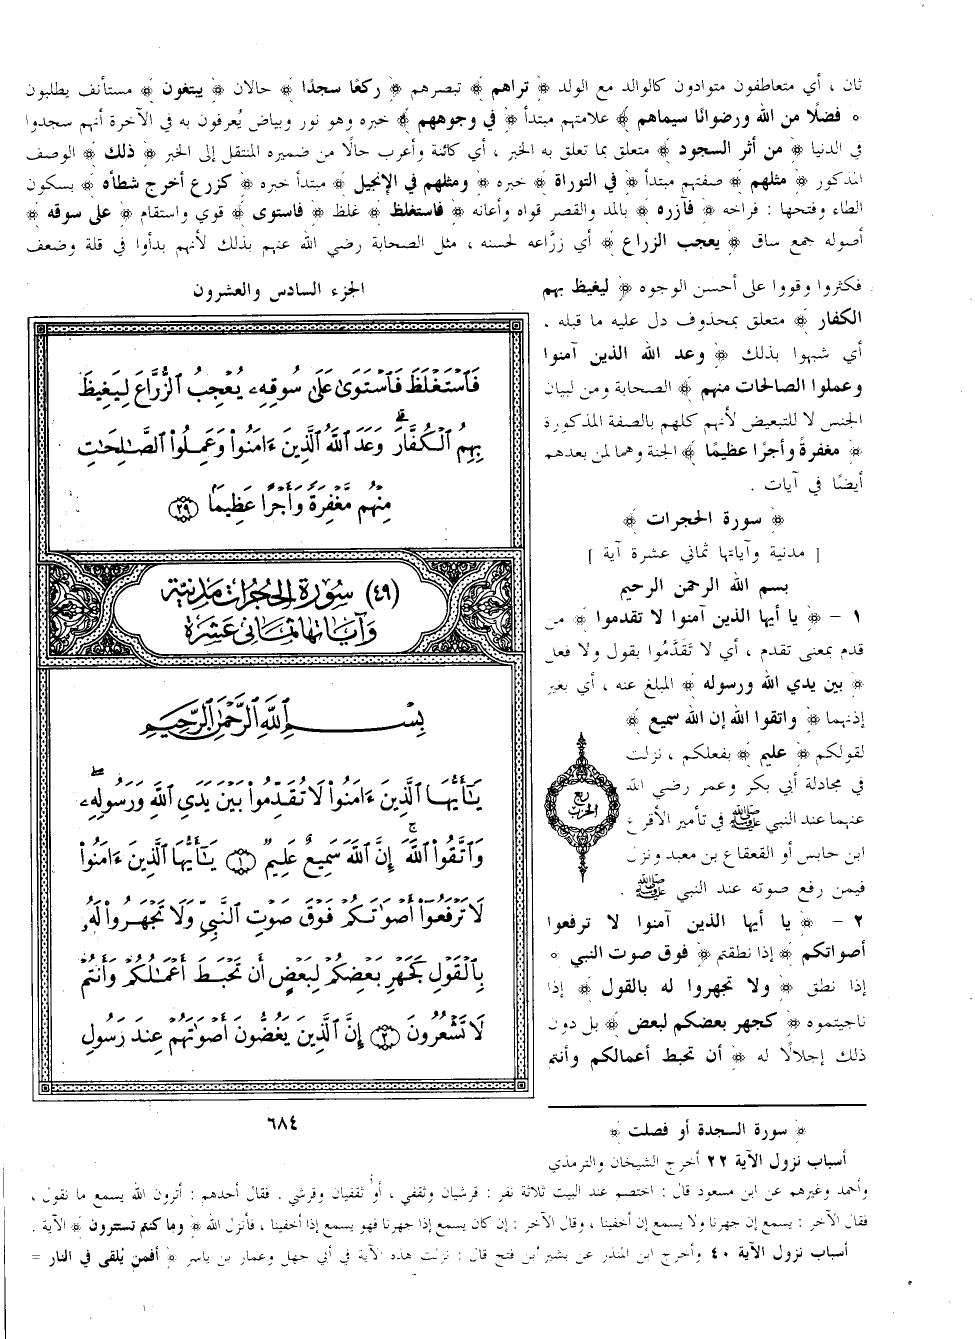 ثان ، أي متعاطفون متوادون كالوالد مع الولد ﴿ تراهم ﴾ تبصرهم ﴿ ركعًا سجدًا ﴾ حالان ﴿ يبتغون ﴾ مستأنف يطلبون
﴿ فضلًا من الله ورضوانًا سيماهم ﴾ علامتهم مبتدأ ﴿ في وجوههم ﴾ خبره وهو نور وبياض يُعرفون به في الآخرة أنهم سجدوا
في الدنيا ﴿ من أثر السجود ﴾ متعلق بما تعلق به الخبر ، أي كائنة وأعرب حالًا من ضميره المنتقل إلى الخبر ﴿ ذلك ﴾ الوصف
المذكور ﴿ مثلهم ﴾ صفتهم مبتدأ ﴿ في التوراة ﴾ خبره ﴿ ومثلهم في الإنجيل ﴾ مبتدأ خبره ﴿ كزرع أخرج شطأه ﴾ بسكون
الطاء وفتحها : فراخه ﴿ فآزره ﴾ بالمد والقصر قواه وأعانه ﴿ فاستغلظ ﴾ غلظ ﴿ فاستوى ﴾ قوي واستقام ﴿ على سوقه ﴾
أصوله جمع ساق ﴿ يعجب الزراع ﴾ أي زرَّاعه لحسنه ، مثل الصحابة رضي الله عنهم بذلك لأنهم بدأوا في قلة وضعف
فكثروا وقووا على أحسن الوجوه ﴿ ليغيظ بهم
الكفار ﴾ متعلق بمحذوف دل عليه ما قبله ،
أي شبهوا بذلك ﴿ وعد الله الذين آمنوا
وعملوا الصالحات منهم ﴾ الصحابة ومن لبيان
الجنس لا للتبعيض لأنهم كلهم بالصفة المذكورة
﴿ مغفرةً وأجرًا عظيمًا ﴾ الجنة وهما لمن بعدهم
أيضًا في آيات .
﴿ سورة الحجرات ﴾
[ مدنية وآياتها ثماني عشرة آية ]
بسم الله الرحمن الرحيم
١ - ﴿ يا أيها الذين آمنوا لا تقدموا ﴾ من
قدم بمعنى تقدم ، أي لا تَقَدَّمُوا بقول ولا فعل
﴿ بين يدي الله ورسوله ﴾ المبلغ عنه ، أي بغير
إذنهما ﴿ واتقوا الله إن الله سميع ﴾
لقولكم ﴿ عليم ﴾ بفعلكم ، نزلت
في مجادلة أبي بكر وعمر رضي الله
عنهما عند النبي ﷺ في تأمير الأقرع
ابن حابس أو القعقاع بن معبد ونزل
فيمن رفع صوته عند النبي ﷺ .
٢ - ﴿ يا أيها الذين آمنوا لا ترفعوا
أصواتكم ﴾ إذا نطقتم ﴿ فوق صوت النبي ﴾
إذا نطق ﴿ ولا تجهروا له بالقول ﴾ إذا
ناجيتموه ﴿ كجهر بعضكم لبعض ﴾ بل دون
ذلك إجلالًا له ﴿ أن تحبط أعمالكم وأنتم
الجزء السادس والعشرون
فَٱسْتَغْلَظَ فَٱسْتَوَىٰ عَلَىٰ سُوقِهِۦ يُعْجِبُ ٱلزُّرَّاعَ لِيَغِيظَ
بِهِمُ ٱلْكُفَّارَ ۗ وَعَدَ ٱللَّهُ ٱلَّذِينَ ءَامَنُوا۟ وَعَمِلُوا۟ ٱلصَّـٰلِحَـٰتِ
مِنْهُم مَّغْفِرَةً وَأَجْرًا عَظِيمًۢا ﴿٢٩﴾
(٤٩) سُورَةُ الحُجُرَاتِ مَدَنيَّة
وَآيَاتهَا ثَمَانِي عَشْرَة
بِسْمِ ٱللَّهِ ٱلرَّحْمَٰنِ ٱلرَّحِيمِ
يَـٰٓأَيُّهَا ٱلَّذِينَ ءَامَنُوا۟ لَا تُقَدِّمُوا۟ بَيْنَ يَدَىِ ٱللَّهِ وَرَسُولِهِۦ ۖ
وَٱتَّقُوا۟ ٱللَّهَ ۚ إِنَّ ٱللَّهَ سَمِيعٌ عَلِيمٌ ﴿١﴾ يَـٰٓأَيُّهَا ٱلَّذِينَ ءَامَنُوا۟
لَا تَرْفَعُوٓا۟ أَصْوَٰتَكُمْ فَوْقَ صَوْتِ ٱلنَّبِىِّ وَلَا تَجْهَرُوا۟ لَهُۥ
بِٱلْقَوْلِ كَجَهْرِ بَعْضِكُمْ لِبَعْضٍ أَن تَحْبَطَ أَعْمَـٰلُكُمْ وَأَنتُمْ
لَا تَشْعُرُونَ ﴿٢﴾ إِنَّ ٱلَّذِينَ يَغُضُّونَ أَصْوَٰتَهُمْ عِندَ رَسُولِ
ربع
الحزب
٦٨٤
﴿ سورة السجدة أو فصلت ﴾
أسباب نزول الآية ٢٢ أخرج الشيخان والترمذي
وأحمد وغيرهم عن ابن مسعود قال : اختصم عند البيت ثلاثة نفر : قرشيان وثقفي ، أو ثقفيان وقرشي . فقال أحدهم : أترون الله يسمع ما نقول ،
فقال الآخر : يسمع إن جهرنا ولا يسمع إن أخفينا ، وقال الآخر : إن كان يسمع إذا جهرنا فهو يسمع إذا أخفينا ، فأنزل الله ﴿ وما كنتم تستترون ﴾ الآية .
أسباب نزول الآية ٤٠ وأخرج ابن المنذر عن بشير بن فتح قال : نزلت هذه الآية في أبي جهل وعمار بن ياسر ﴿ أفمن يُلقى في النار =